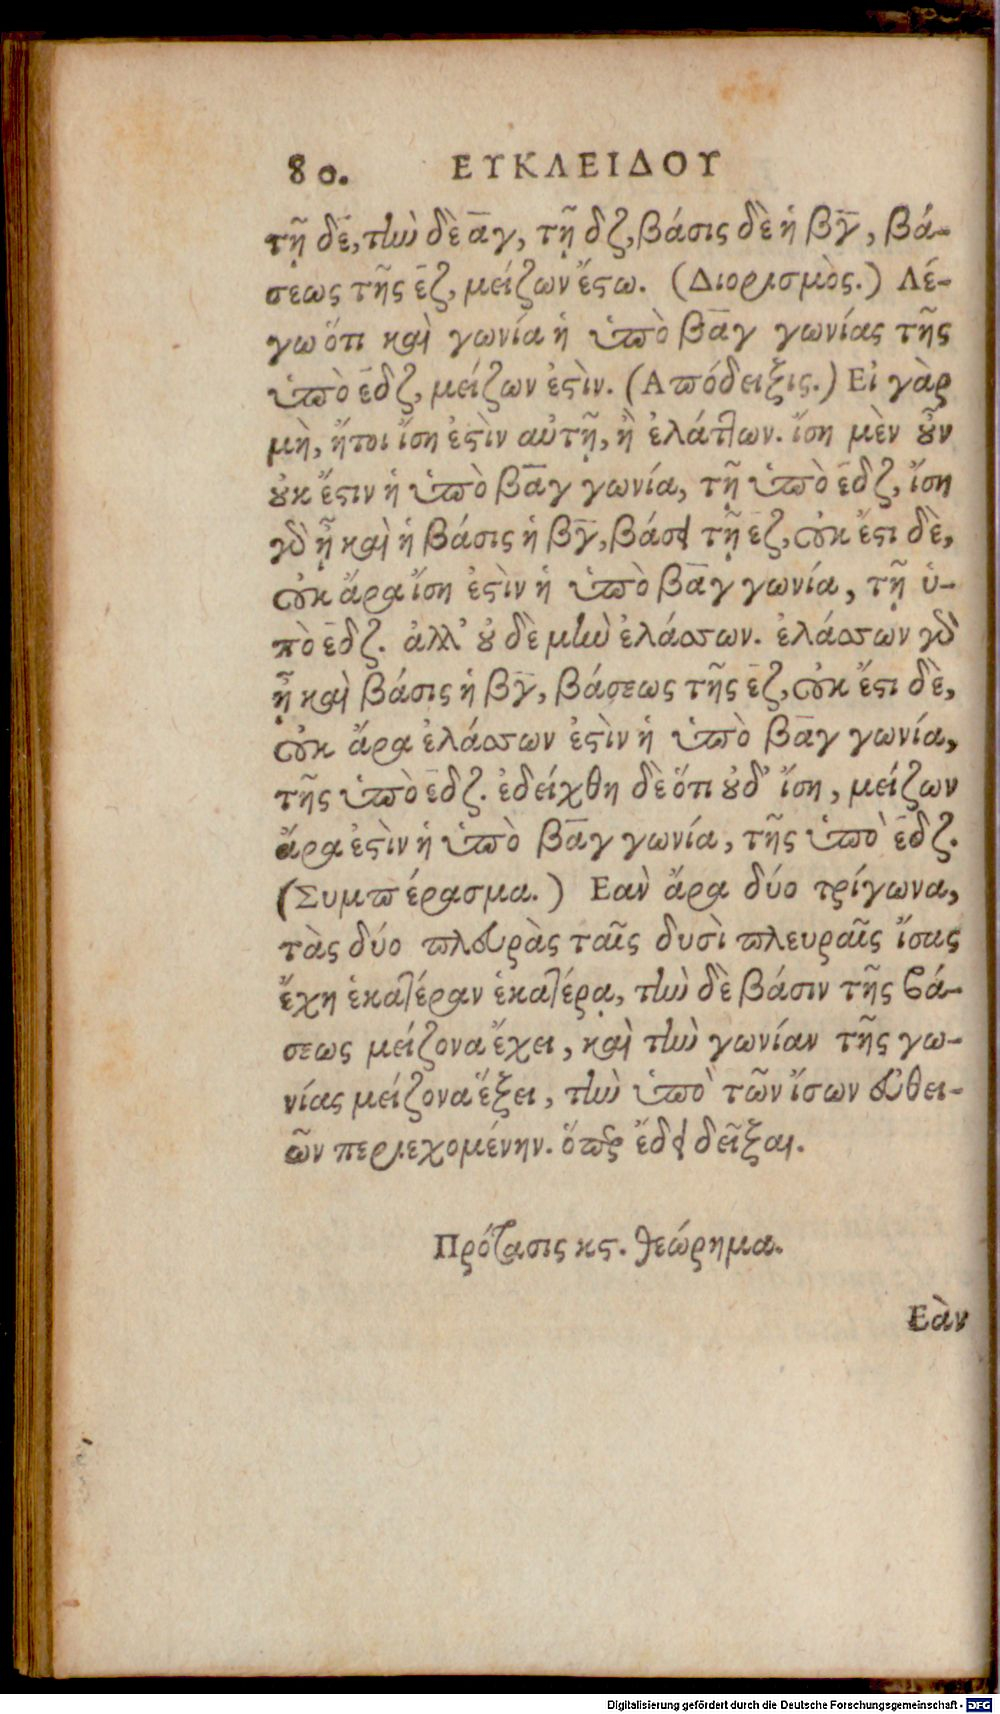 80. ΕΥΚΛΕΙΔΟΥ
τῇ δε̄, τὴν δὲ ᾱγ, τῇ δζ, βάσις δὲ ἡ βγ̄, βά-
σεως τῆς ε̄ζ, μείζων ἔϛω. (Διορισμὸς.) Λέ-
γω ὅτι καὶ γωνία ἡ ὑπὸ βᾱγ γωνίας τῆς
ὑπὸ ε̄δζ, μείζων ἐϛὶν. (Απόδειξις.) Εἰ γὰρ
μὴ, ἤτοι ἴση ἐϛὶν αὐτῇ, ἢ ἐλάττων. ἴση μὲν οὖν
οὐκ ἔϛιν ἡ ὑπὸ βᾱγ γωνία, τῇ ὑπὸ ε̄δζ, ἴση
γὸ ᾖ καὶ ἡ βάσις ἡ βγ̄, βάσει τῇ ε̄ζ, οὐκ ἔϛι δὲ,
οὐκ ἄρα ἴση ἐϛὶν ἡ ὑπὸ βᾱγ γωνία, τῇ ὑ-
πὸ ε̄δζ. ἀλλ’ οὐδὲ μὴν ἐλάσσων. ἐλάσσων γὸ
ᾖ καὶ βάσις ἡ βγ̄, βάσεως τῆς ε̄ζ, οὐκ ἔϛι δὲ,
οὐκ ἄρα ἐλάσσων ἐϛὶν ἡ ὑπὸ βᾱγ γωνία,
τῆς ὑπὸ ε̄δζ. ἐδείχθη δὲ ὅτι οὐδ’ ἴση, μείζων
ἄρα ἐϛὶν ἡ ὑπὸ βᾱγ γωνία, τῆς ὑπὸ ε̄δζ.
(Συμπέρασμα.) Εαὰν ἄρα δύο τρίγωνα,
τὰς δύο πλευρὰς ταῖς δυσὶ πλευραῖς ἴσας
ἔχη ἑκατέραν ἑκατέρᾳ, τὴν δὲ βάσιν τῆς βά-
σεως μείζονα ἔχει, καὶ τὴν γωνίαν τῆς γω-
νίας μείζονα ἕξει, τὴν ὑπὸ τῶν ἴσων εὐθει-
ῶν περιεχομένην. ὅπερ ἔδει δεῖξαι.
Πρότασις κϛ. θεώρημα.
Εὰν
Digitalisierung gefördert durch die Deutsche Forschungsgemeinschaft - DFG